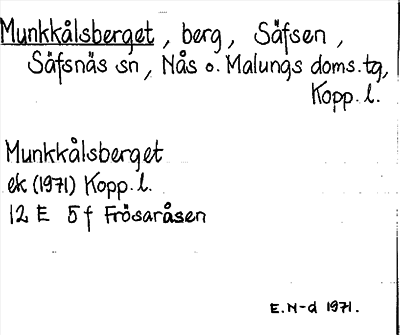 Munkkålsberget, berg, Säfsen,
Säfsnäs sn, Nås o. Malungs doms. tg,
Kopp. l.
Munkkålsberget
ek (1971) Kopp. l.
12 E 5 f Frösaråsen
E.N-d 1971.